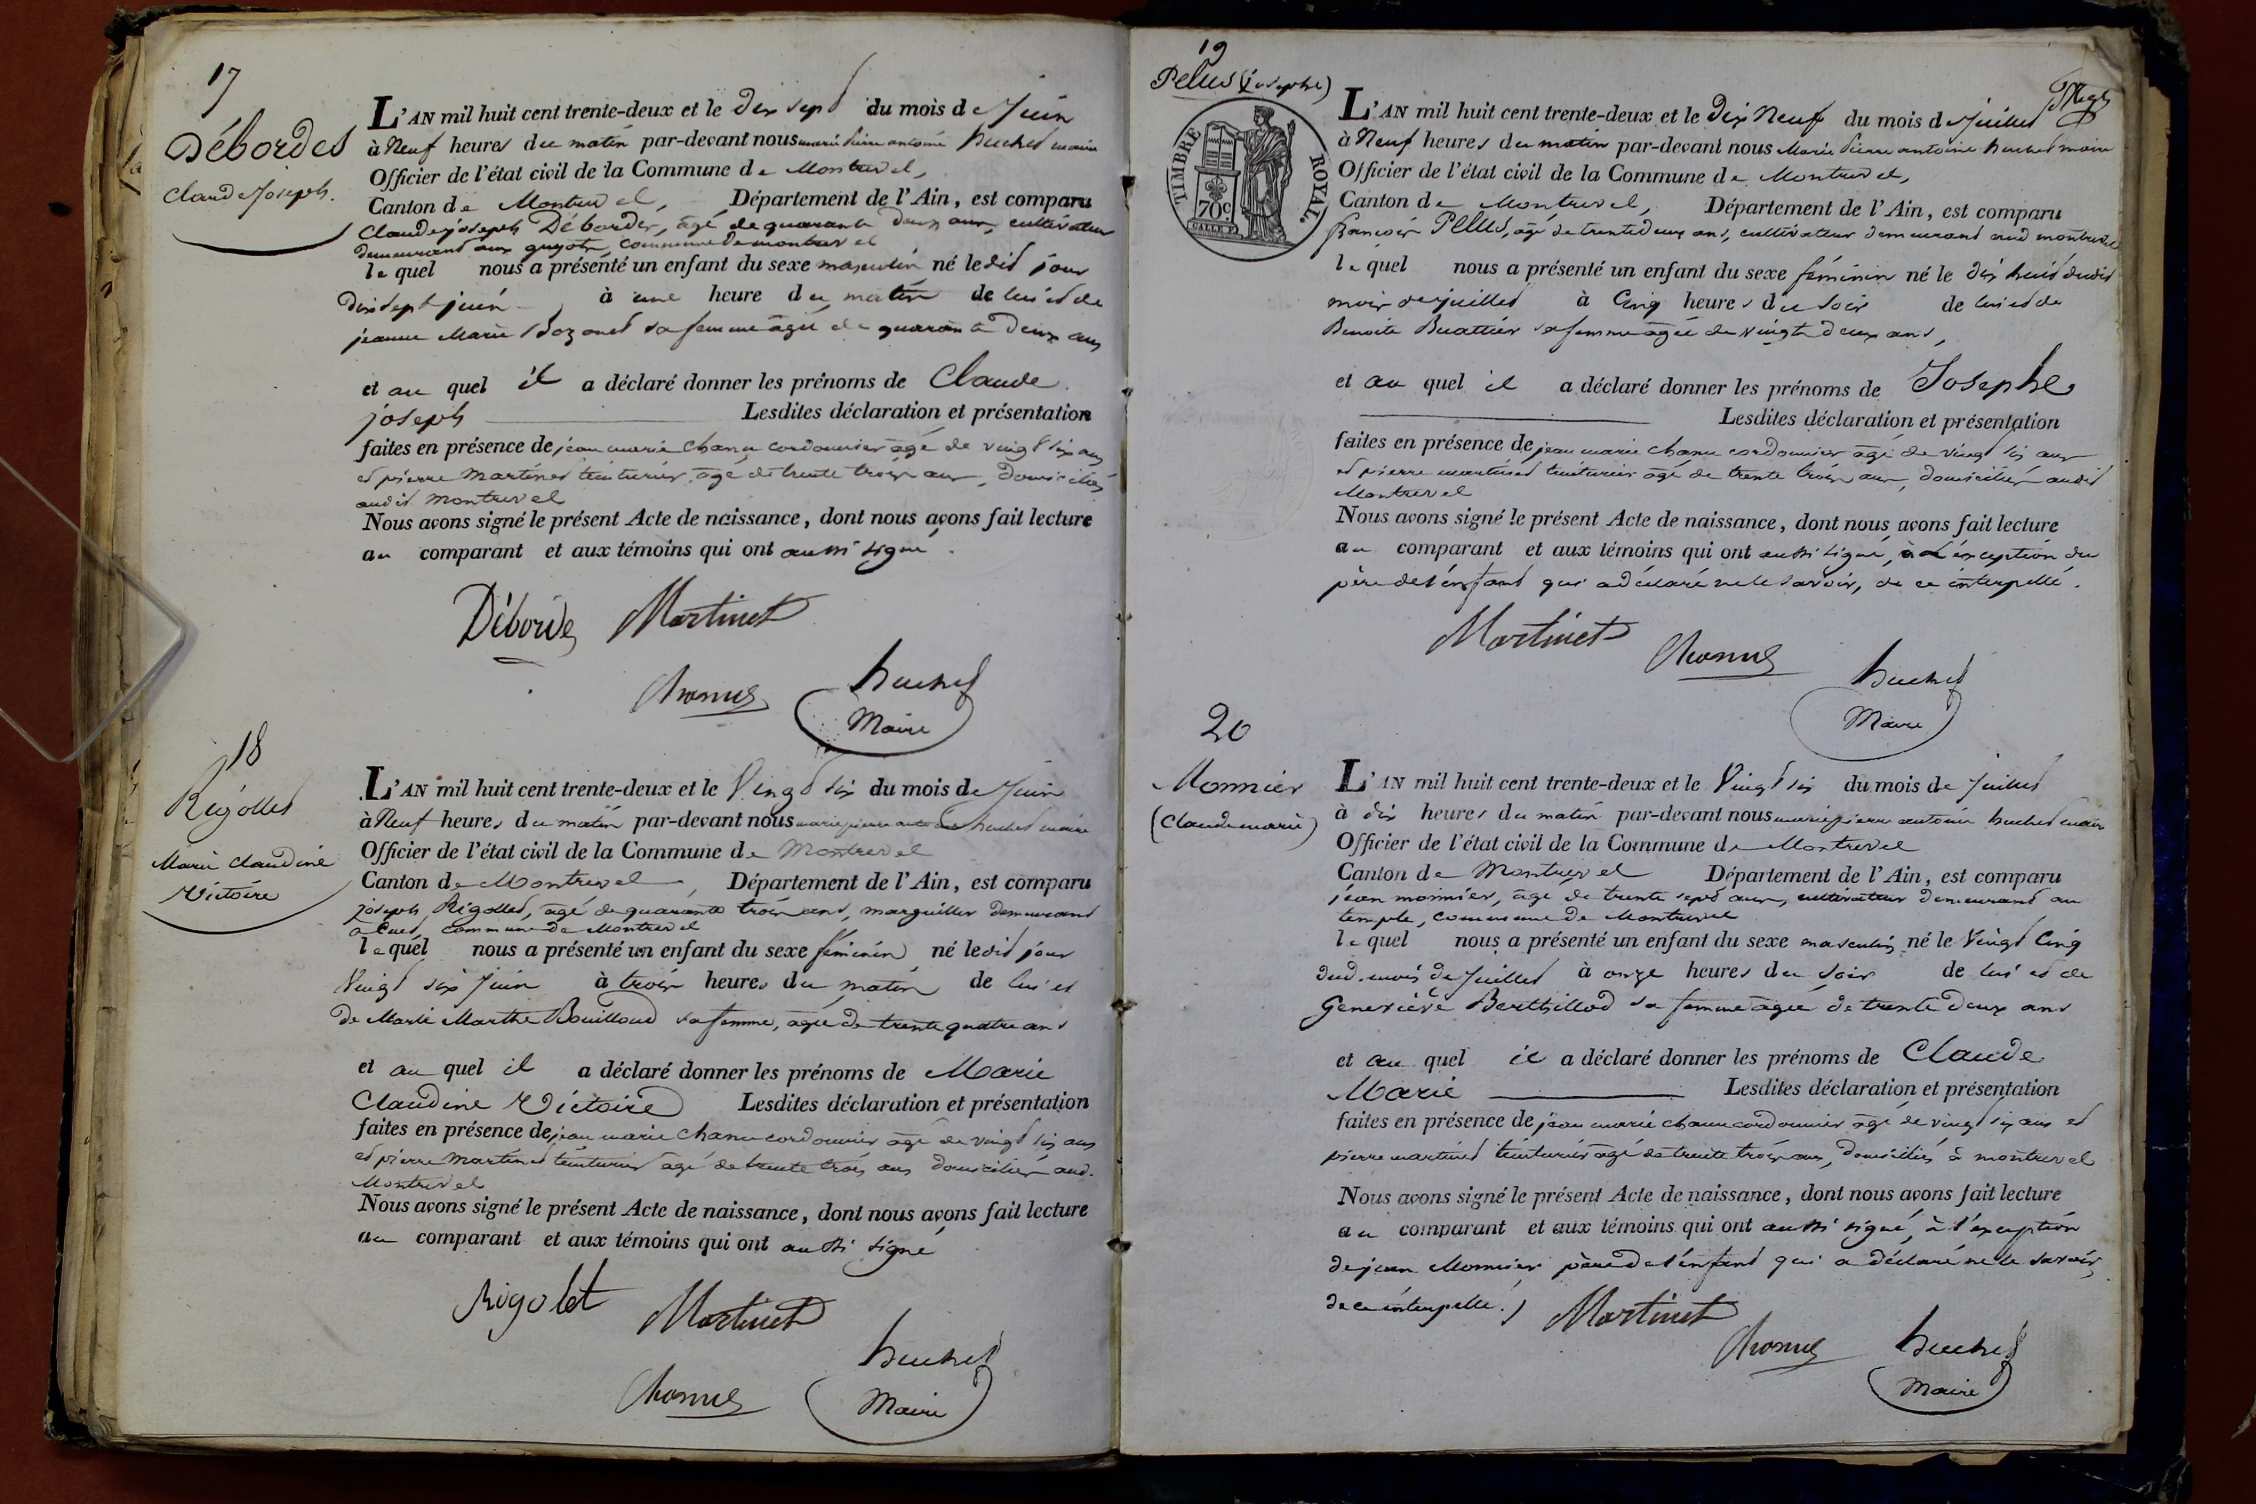 17
Débordes
Claude Joseph.
L'AN mil huit cent trente-deux et le dix sept du mois de Juin
à Neuf heures du matin par-devant nous marie pierre antoine huchet maire
Officier de l'état civil de la Commune de Montrevel,
Canton de Montrevel, Département de l'Ain, est comparu
Claude joseph Débordes, âgé de quarante deux ans, cultivateur
demeurant aux guyots commune de montrevel
lequel nous a présenté un enfant du sexe masculin né ledit jour
dix sept juin à une heure du matin de lui et de
jeanne Marie Bozonet sa femme âgée de quarante deux ans
et au quel il a déclaré donner les prénoms de Claude
joseph Lesdites déclaration et présentation
faites en présence de jean marie chanu cordonnier âgé de vingt six ans
et pierre martinet teinturier, âgé de trente trois ans, domiciliés
audit montrevel
Nous avons signé le présent Acte de naissance, dont nous avons fait lecture
au comparant et aux témoins qui ont aussi signé.
Débordes Martinet
Chanu huchet
Maire
18
Rigollet
Marie Claudine
Victoire
L'AN mil huit cent trente-deux et le Vingt six du mois de Juin
à Neuf heures du matin par-devant nous marie pierre antoine huchet maire
Officier de l'état civil de la Commune de Montrevel
Canton de Montrevel, Département de l'Ain, est comparu
joseph Rigollet, âgé de quarante trois ans, marguillier demeurant
à Cuet, commune de Montrevel
lequel nous a présenté un enfant du sexe féminin né ledit jour
Vingt six Juin à trois heures du matin de lui et
de Marie Marthe Bouilloud sa femme, âgée de trente quatre ans
et au quel il a déclaré donner les prénoms de Marie
Claudine Victoire Lesdites déclaration et présentation
faites en présence de jean marie chanu cordonnier âgé de vingt six ans
et pierre Martinet teinturier âgé de trente trois ans domiciliés aud.
Montrevel
Nous avons signé le présent Acte de naissance, dont nous avons fait lecture
au comparant et aux témoins qui ont aussi signé
Rigolet Martinet
Chanu huchet
Maire
19
Pelus (Josephe)
TIMBRE ROYAL.
70c
L'AN mil huit cent trente-deux et le dix Neuf du mois de Juillet
à Neuf heures du matin par-devant nous Marie pierre antoine huchet maire
Officier de l'état civil de la Commune de Montrevel,
Canton de Montrevel, Département de l'Ain, est comparu
françois Pelus, âgé de trente deux ans, cultivateur demeurant aud montrevel
lequel nous a présenté un enfant du sexe féminin né le dix huit dudit
mois de juillet à Cinq heures du soir de lui et de
Benoite Buattier sa femme âgée de vingt deux ans,
et au quel il a déclaré donner les prénoms de Josephe
Lesdites déclaration et présentation
faites en présence de jean marie chanu cordonnier âgé de vingt six ans
et pierre martinet teinturier âgé de trente trois ans, domiciliés audit
Montrevel
Nous avons signé le présent Acte de naissance, dont nous avons fait lecture
au comparant et aux témoins qui ont aussi signé, à L'exception du
père de l'enfant qui a déclaré ne le savoir, de ce interpellé.
Martinet Chanu huchet
Maire
20
Monnier
(Claude marie)
L'AN mil huit cent trente-deux et le Vingt six du mois de Juillet
à dix heures du matin par-devant nous marie pierre antoine huchet maire
Officier de l'état civil de la Commune de Montrevel
Canton de Montrevel Département de l'Ain, est comparu
jean monnier, âgé de trente sept ans, cultivateur demeurant au
temple, commune de Montrevel
lequel nous a présenté un enfant du sexe masculin né le Vingt Cinq
dud. mois de Juillet à onze heures du soir de lui et de
Geneviève Berthillod sa femme âgée de trente deux ans
et au quel il a déclaré donner les prénoms de Claude
Marie Lesdites déclaration et présentation
faites en présence de jean marie chanu cordonnier âgé de vingt six ans et
pierre martinet teinturier âgé de trente trois ans, domiciliés à montrevel
Nous avons signé le présent Acte de naissance, dont nous avons fait lecture
au comparant et aux témoins qui ont aussi signé, à l'exception
de jean Monnier père de l'enfant qui a déclaré ne le savoir,
de ce interpellé. Martinet
Chanu huchet
Maire